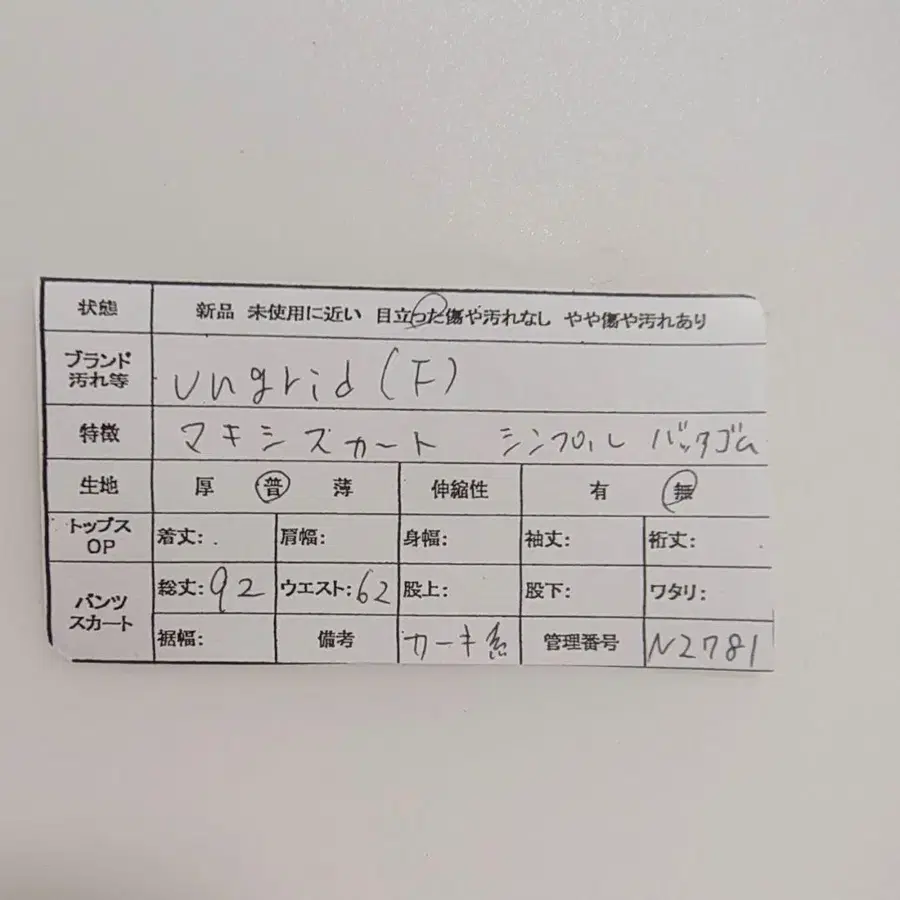 状態 新品 未使用に近い 目立った傷や汚れなし やや傷や汚れあり
ブランド
汚れ等 ungrid (F)
特徴 マキシスカート シンプル バックゴム
生地 厚 普 薄 伸縮性 有 無
トップス
OP 着丈: 肩幅: 身幅: 袖丈: 裄丈:
パンツ
スカート 総丈: 92 ウエスト: 62 股上: 股下: ワタリ:
裾幅: 備考 カーキ系 管理番号 N2781